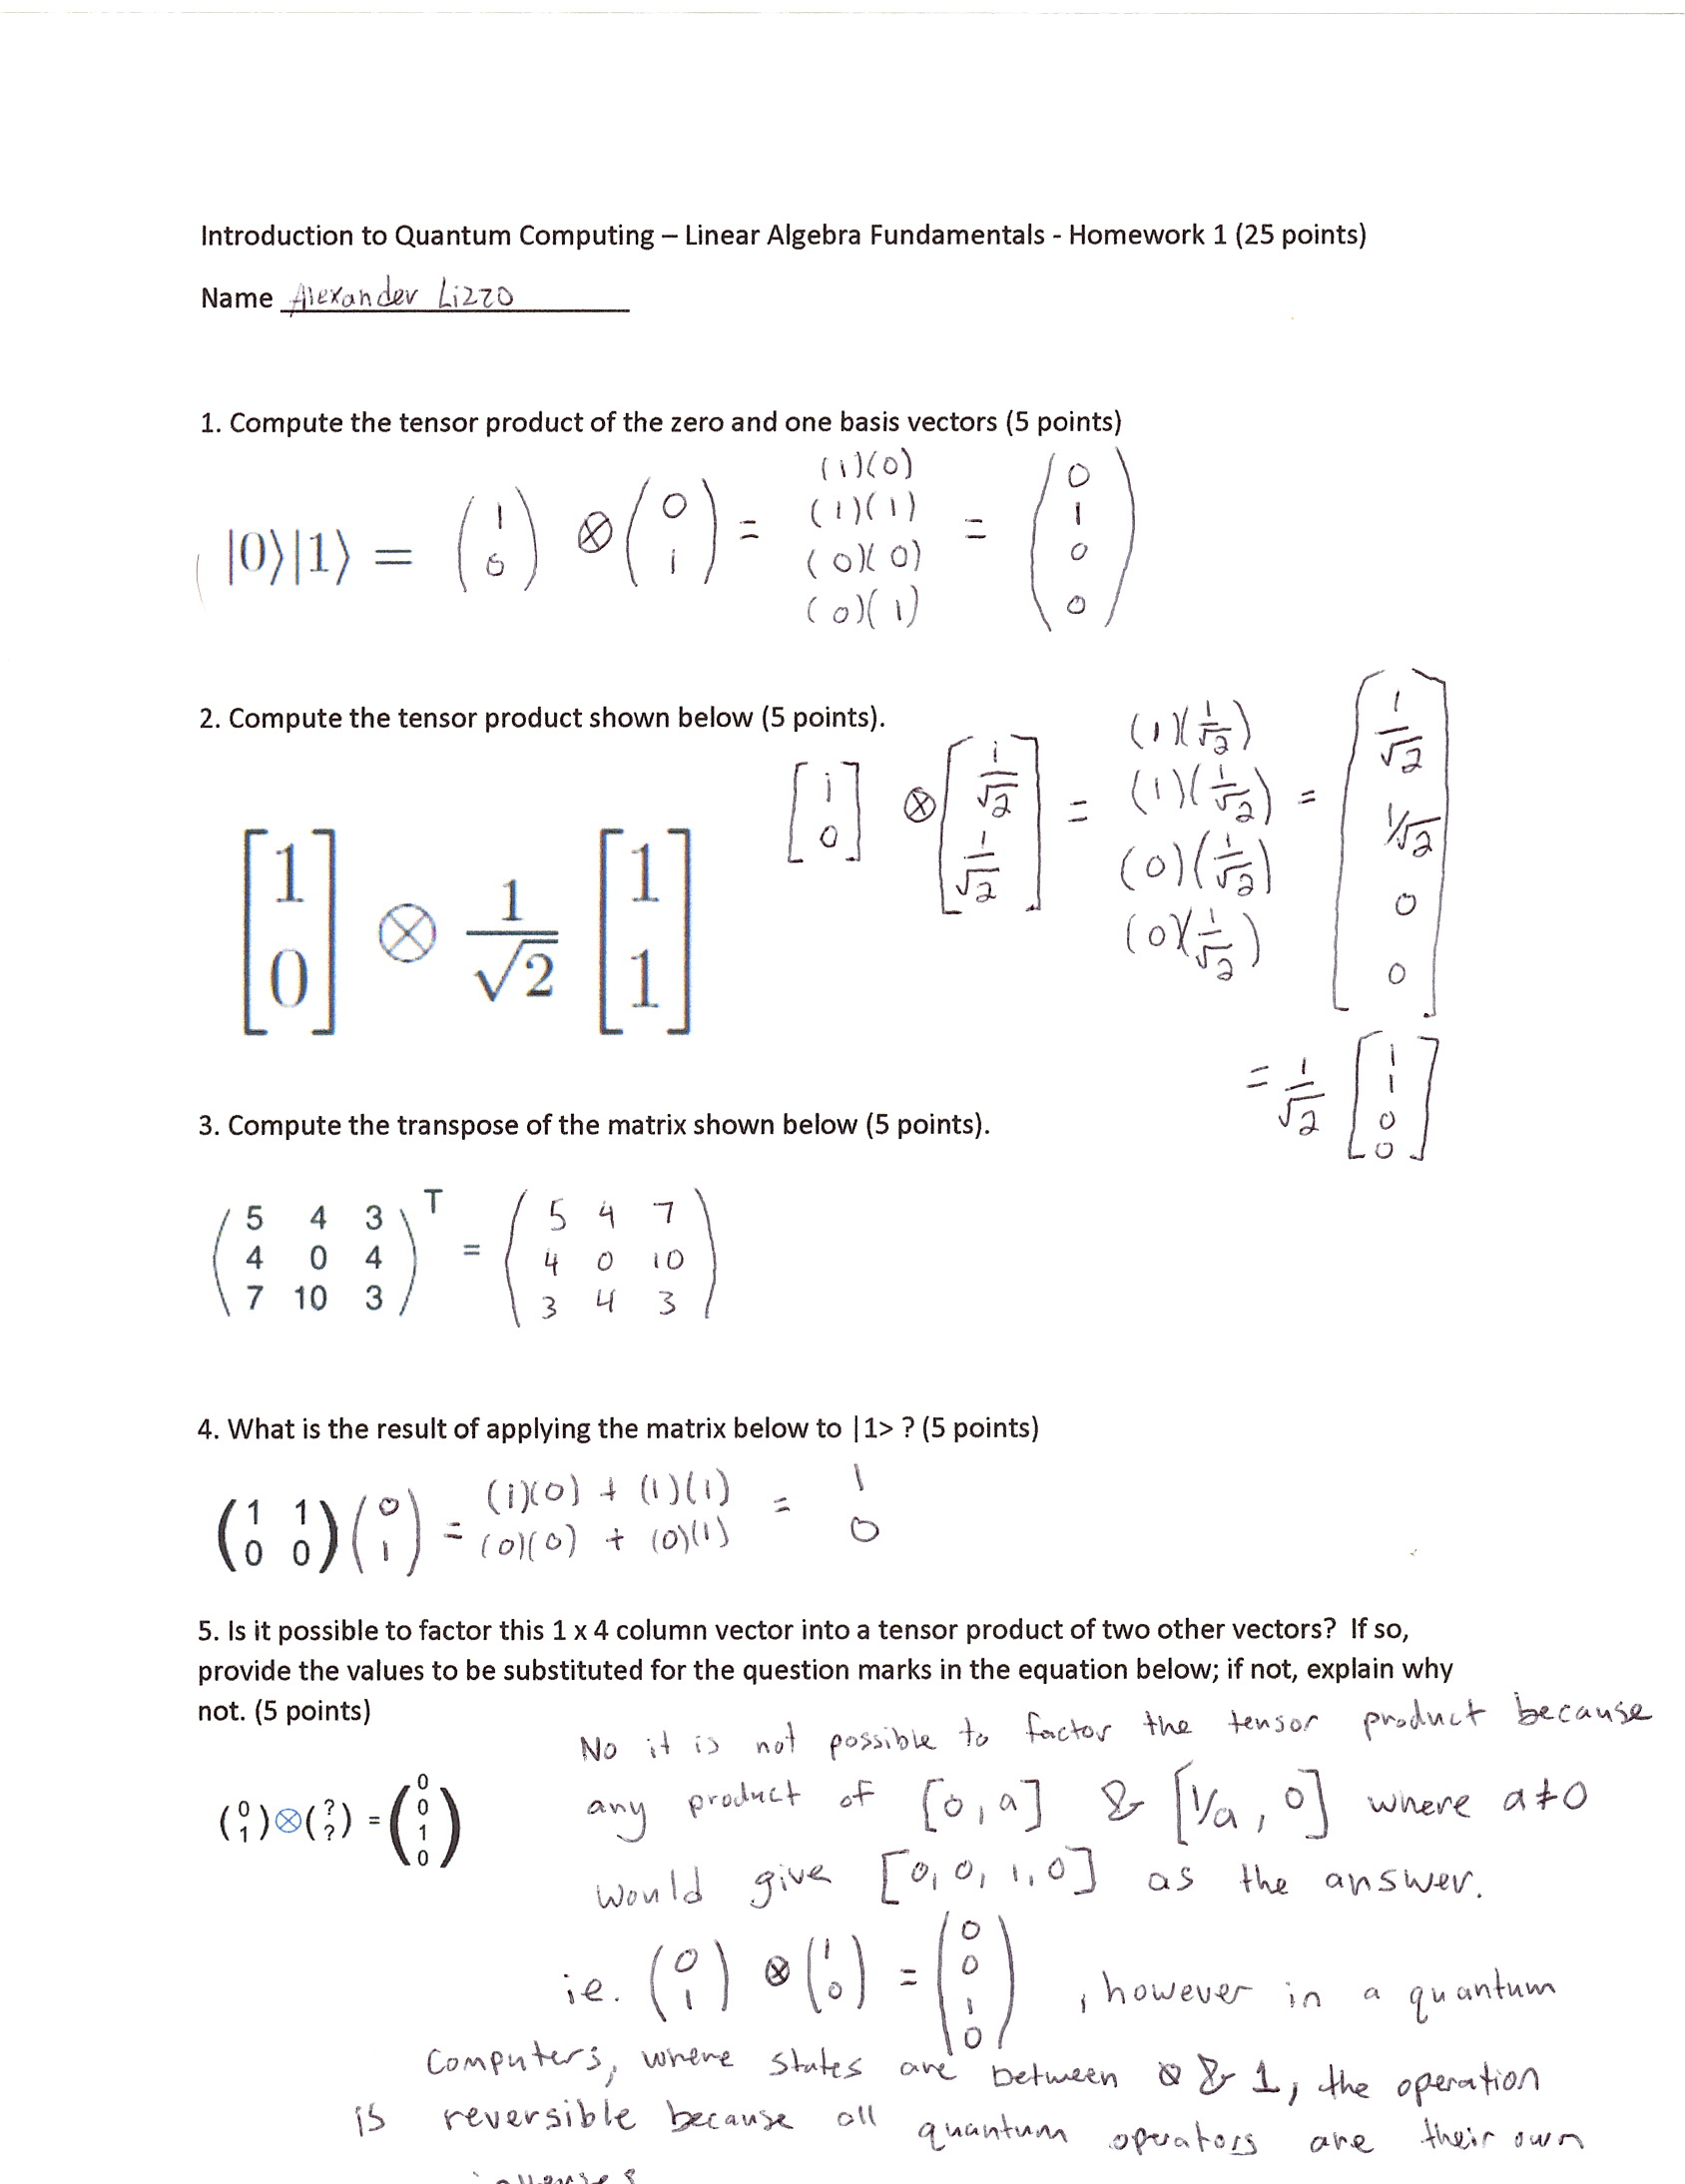 Introduction to Quantum Computing – Linear Algebra Fundamentals - Homework 1 (25 points)
Name Alexander Lizzo
1. Compute the tensor product of the zero and one basis vectors (5 points)
|0⟩|1⟩ = (1 0) ⊗ (0 1) = (1)(0) (1)(1) (0)(0) (0)(1) = (0 1 0 0)
2. Compute the tensor product shown below (5 points).
[1 0] ⊗ 1/√2 [1 1]
[1 0] ⊗ [1/√2 1/√2] = (1)(1/√2) (1)(1/√2) (0)(1/√2) (0)(1/√2) = [1/√2 1/√2 0 0]
= 1/√2 [1 1 0 0]
3. Compute the transpose of the matrix shown below (5 points).
(5 4 3
4 0 4
7 10 3)^T = (5 4 7
4 0 10
3 4 3)
4. What is the result of applying the matrix below to |1> ? (5 points)
(1 1
0 0) (0 1) = (1)(0) + (1)(1) = 1
(0)(0) + (0)(1) 0
5. Is it possible to factor this 1 x 4 column vector into a tensor product of two other vectors? If so,
provide the values to be substituted for the question marks in the equation below; if not, explain why
not. (5 points)
(0 1) ⊗ (? ?) = (0 0 1 0)
No it is not possible to factor the tensor product because
any product of [0, a] & [1/a, 0] where a≠0
would give [0, 0, 1, 0] as the answer.
ie. (0 1) ⊗ (1 0) = (0 0 1 0) , however in a quantum
computers, where states are between 0 & 1, the operation
is reversible because all quantum operators are their own